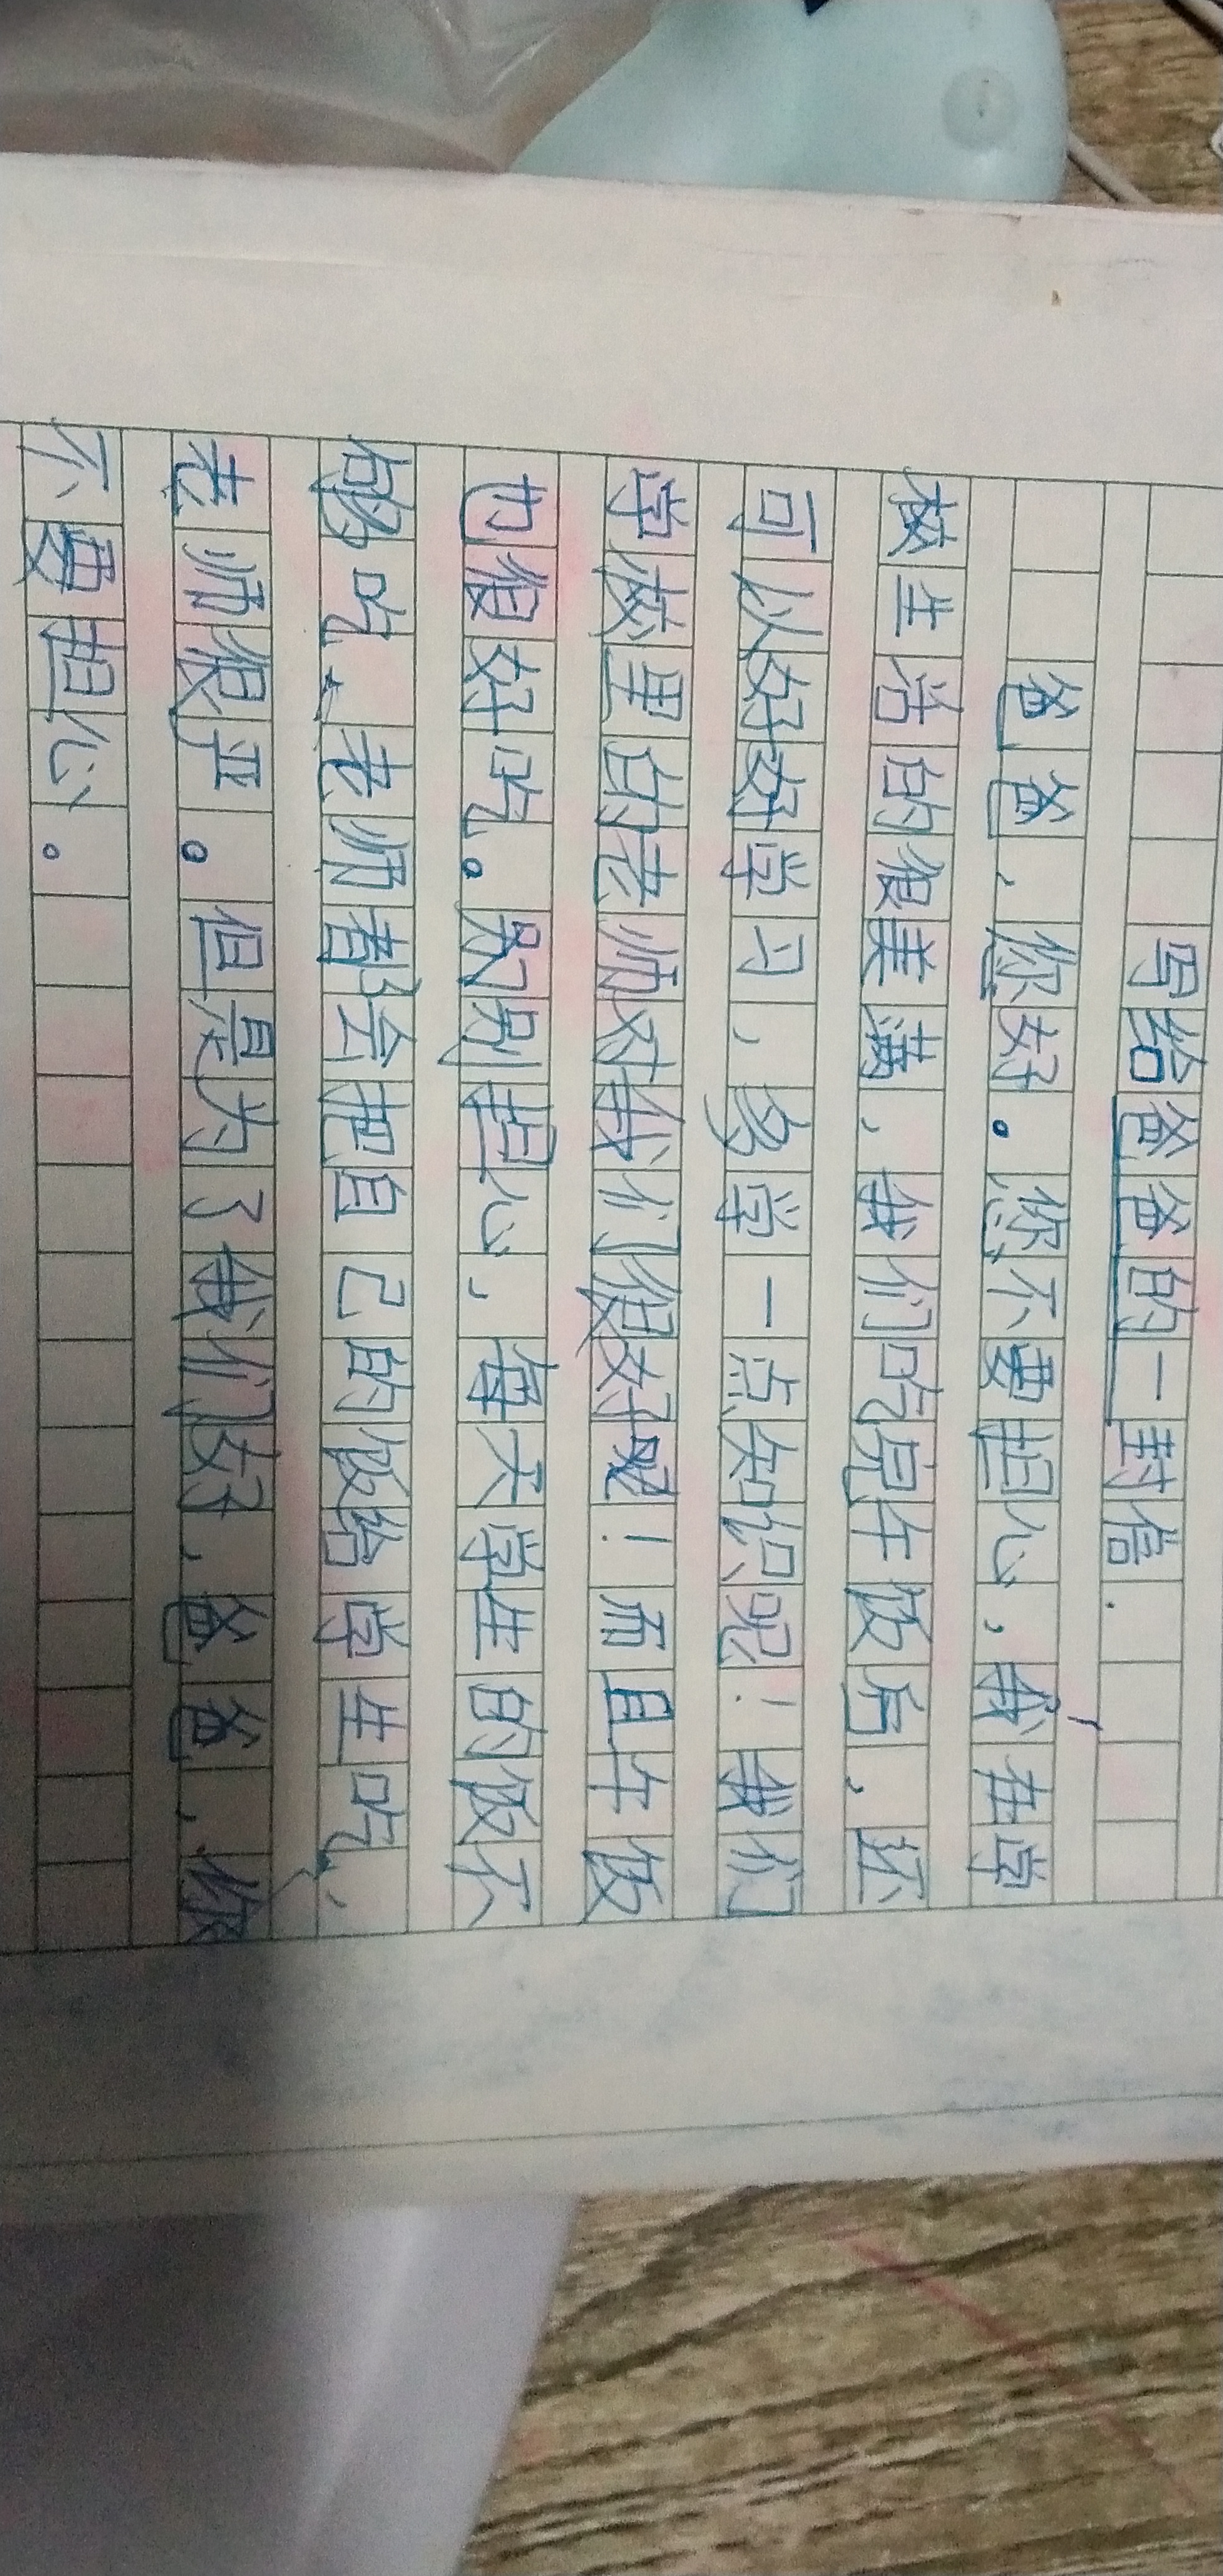 写给爸爸的一封信.
爸爸,您好。您不要担心,我在学
校生活的很美满,我们吃完午饭后,还
可以好好学习,多学一点知识呢!我们
学校里的老师对我们很好呢!而且午饭
也很好吃。别担心,每天学生的饭不
够吃,老师都会把自己的饭给学生吃,
老师很严。但是为了我们好,爸爸,您
不要担心。